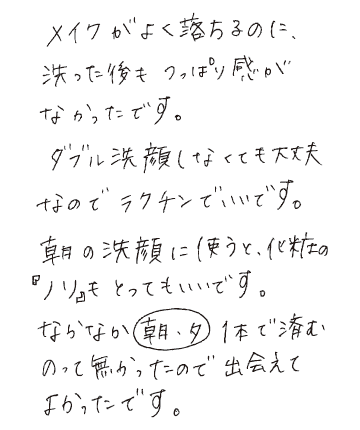 メイクがよく落ちるのに、
洗った後もつっぱり感が
なかったです。
ダブル洗顔しなくても大丈夫
なのでラクチンでいいです。
朝の洗顔に使うと、化粧の
『ノリ』もとってもいいです。
なかなか 朝、夕 1本で済む
のって無かったので出会えて
よかったです。